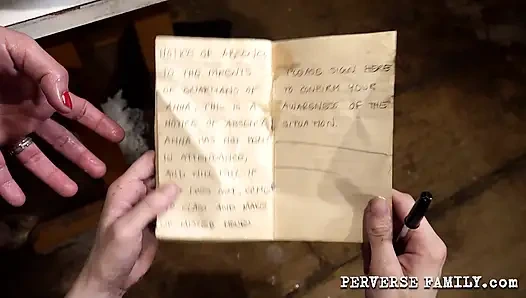 NOTICE OF ABSENCE
TO THE PARENTS
OF GUARDIANS OF
ANNA, THIS IS A
NOTICE OF ABSENCE
ANNA HAS NOT BEEN
IN ATTENDANCE,
AND WILL FAIL IF
DOES NOT COME
TO CLASS AND MAKE
UP MISSED
PLEASE SIGN HERE
TO CONFIRM YOUR
AWARENESS OF THE
SITUATION.
PERVERSE FAMILY.com